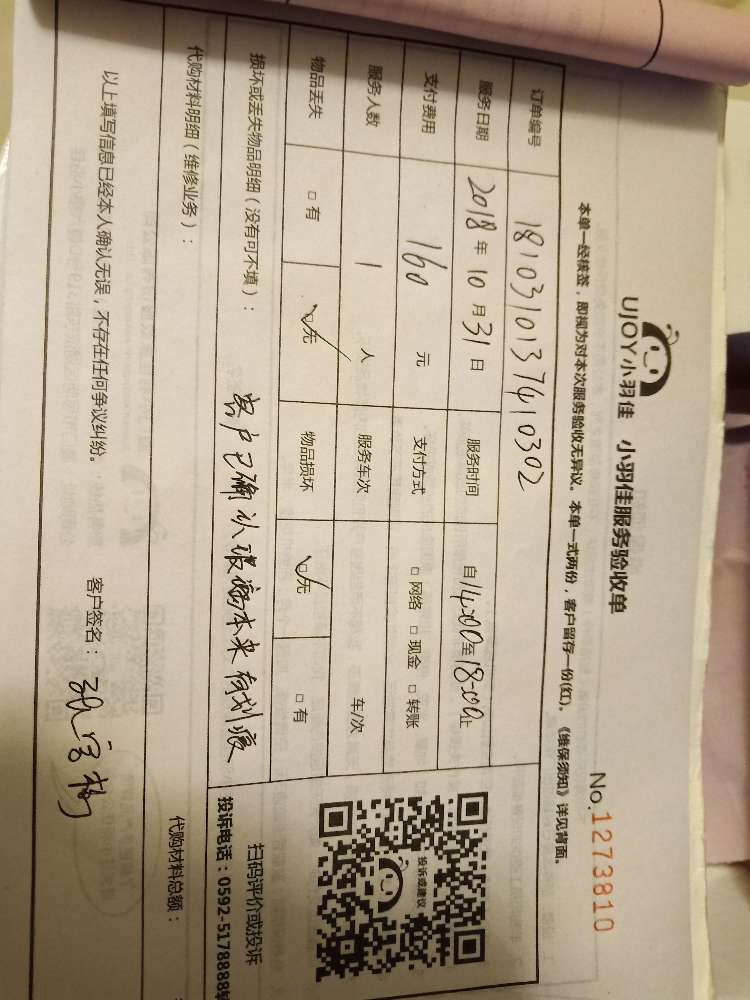 UJOY小羽佳 小羽佳服务验收单
No.1273810
本单一经核签，即视为对本次服务验收无异议。本单一式两份，客户留存一份(红)。《维保须知》详见背面。
订单编号 1810310137410302
服务日期 2018年10月31日 服务时间 自14:00至18:00止
支付费用 160元 支付方式 □网络 □现金 □转账
服务人数 1人 服务车次 车/次
物品丢失 □有 □无 物品损坏 □无 □有
投诉或建议
扫码评价或投诉
投诉电话：0592-5178888转
损坏或丢失物品明细（没有可不填）： 客户已确认玻璃本来有划痕
代购材料明细（维修业务）： 代购材料总额：
以上填写信息已经本人确认无误，不存在任何争议纠纷。 客户签名：